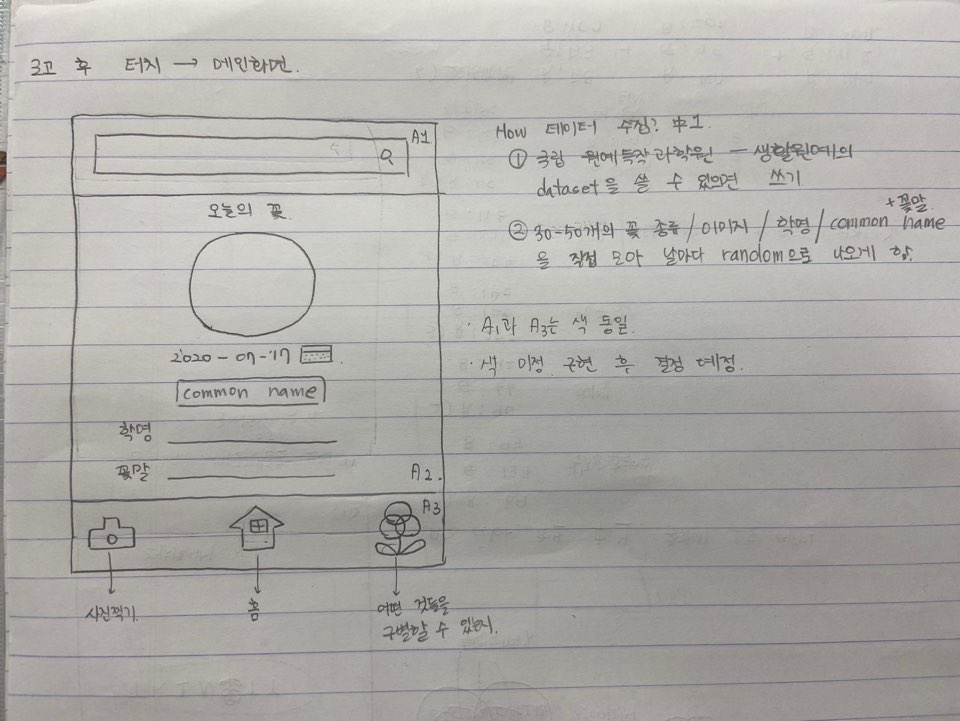 로고 후 터치 → 메인화면.
A1
오늘의 꽃.
2020-07-17
common name
학명
꽃말
A2.
A3
사진찍기.
홈
어떤 것들을
구별할 수 있는지.
How 데이터 수집?
① 국립 원예특작과학원 - 생활원예의
dataset을 쓸 수 있으면 쓰기
+꽃말.
② 30-50개의 꽃 종류/이미지/학명/common name
을 직접 모아 날마다 random으로 나오게 함.
· A1과 A3는 색 동일.
· 색 미정 구현 후 결정 예정.